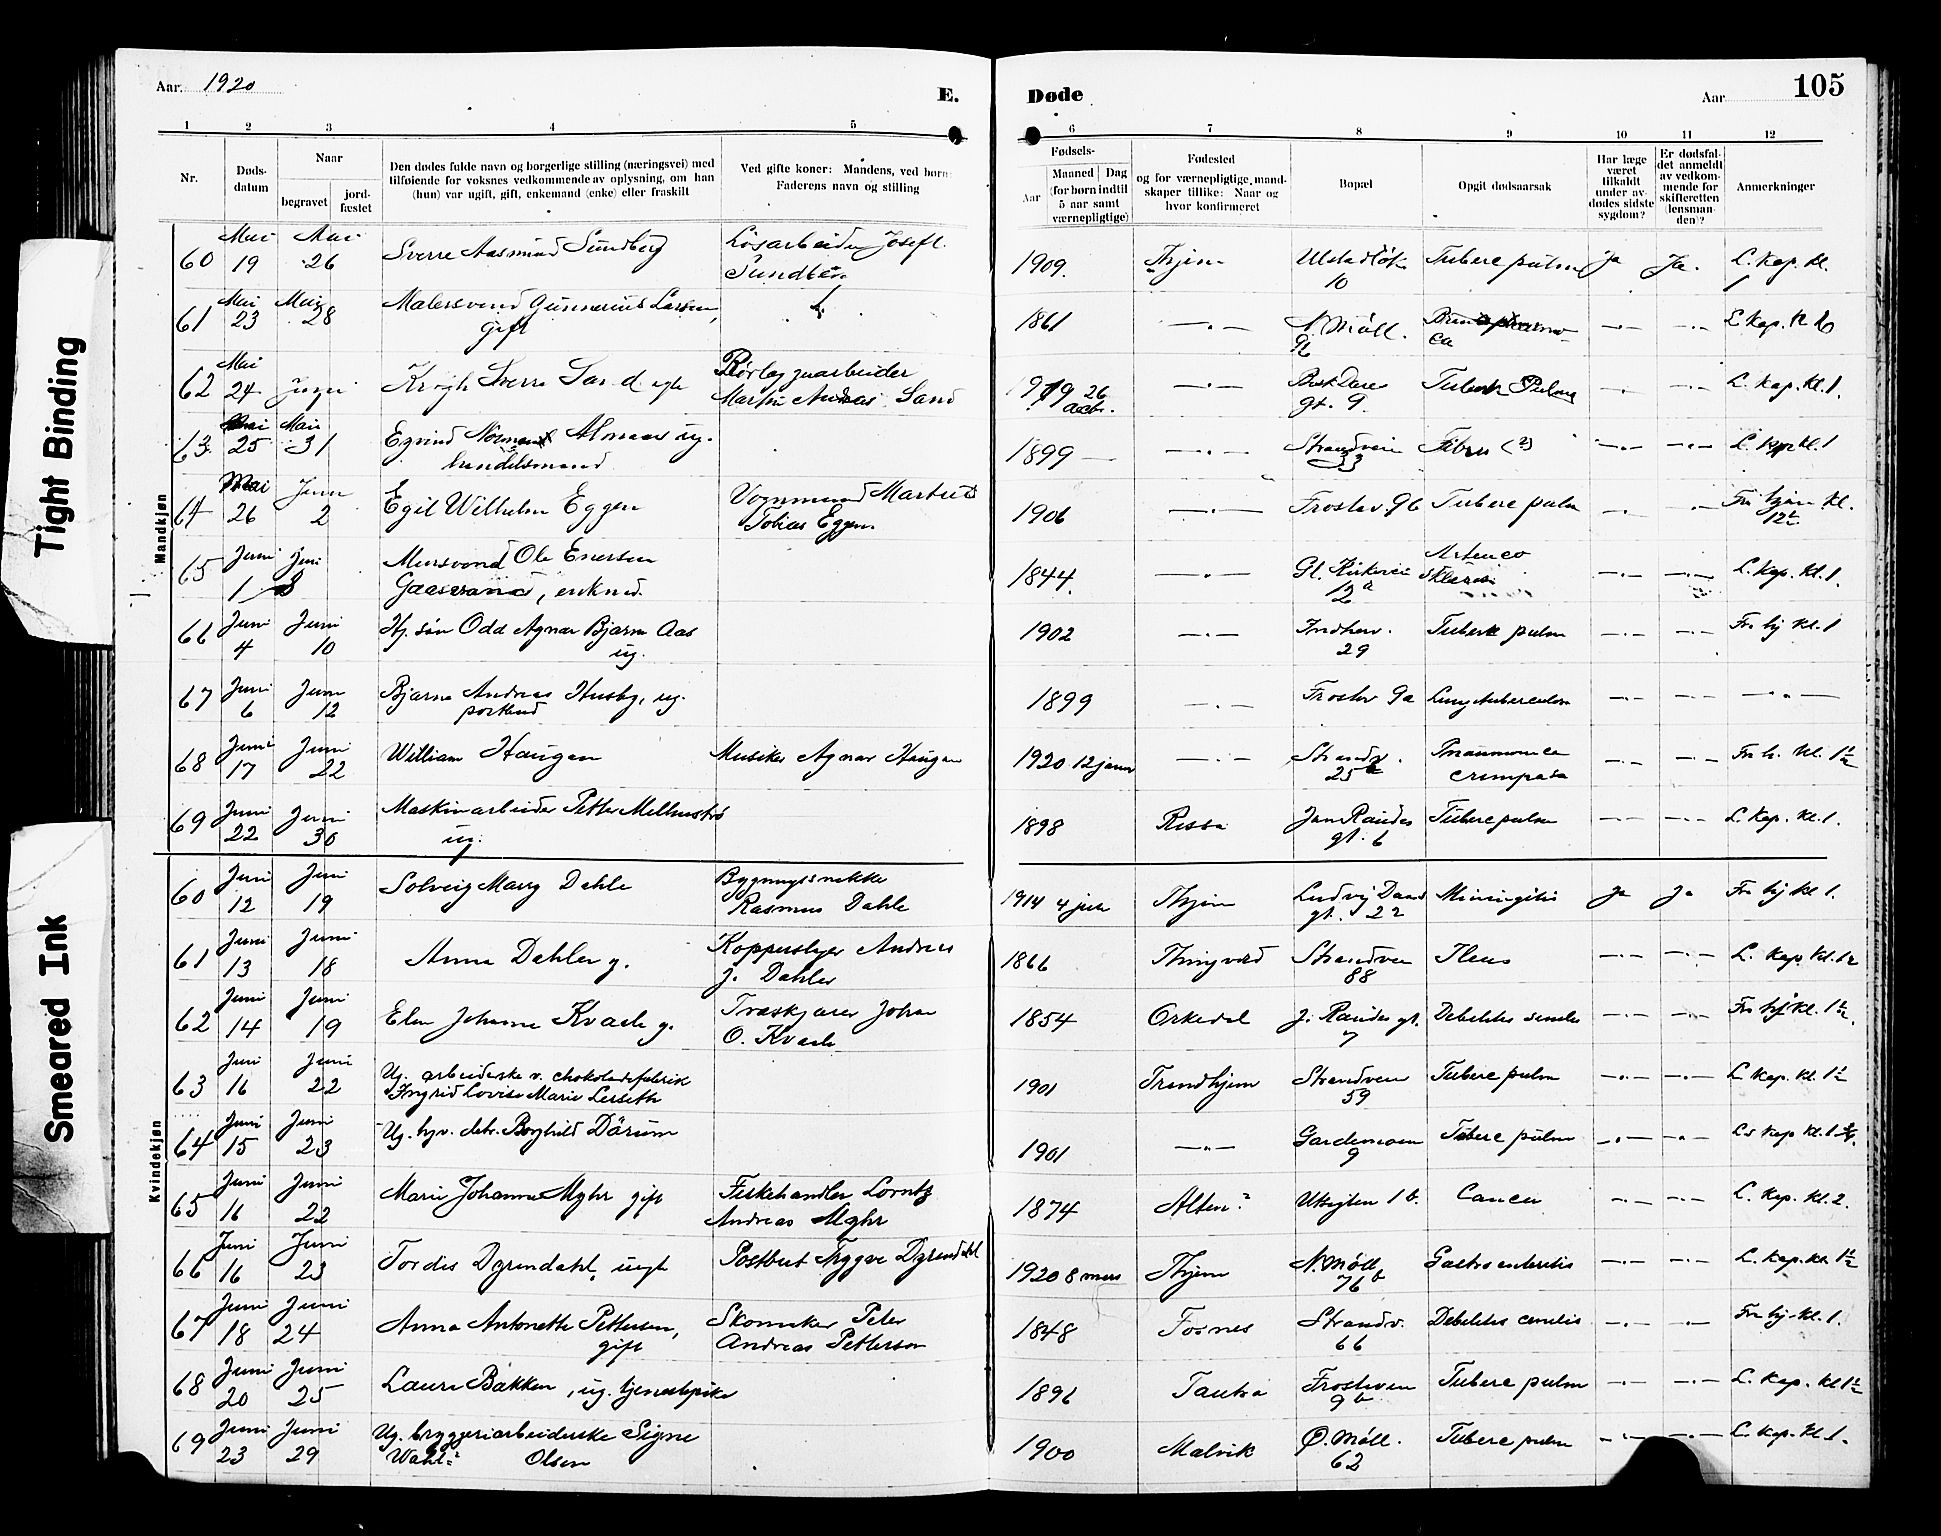 Tight Binding
Smeared Ink
Aar 1920
E. Døde
Aar 105
1 2 3 4 5 6 7 8 9 10 11 12
Nr.
Døds-
datum
Naar
begravet
jord-
fæstet
Den dødes fulde navn og borgerlige stilling (næringsvei) med
tilføiende for voksnes vedkommende av oplysning, om han
(hun) var ugift, gift, enkemand (enke) eller fraskilt
Ved gifte koner: Mandens, ved børn:
Faderens navn og stilling
Fødsels-
Aar
Maaned Dag
(for børn indtil
5 aar samt
værnepligtige)
Fødested
og for værnepligtige mand-
skaper tillike: Naar og
hvor konfirmeret
Bopæl
Opgit dødsaarsak
Har læge
været
tilkaldt
under av-
dødes sidste
sygdom?
Er dødsfal-
det anmeldt
av vedkom-
mende for
skifteretten
(lensman-
den)?
Anmerkninger
Mandkjøn
60 Mai 19 Mai 26 Sverre Aasmund Sundberg Løsarbeider Josef L. Sundberg 1909. Thjem 10 Tuberc pulm Ja Ja. L. kap. kl. 1
61 Mai 23 Mai 28 Malersvend Gunnerius Larsen, gift 1861 —„— N. Møll. 9b —„— —„— L. kap. kl.
62 Mai 24 Martin Andreas Sand 26 —„— gt. 9. Tuberk Pulm —„— —„— L. kap. kl. 1.
63 Mai 25 Mai 31 Eyvind Normand ug. handelsmand 1899 — —„— Strandveien 33 (?) —„— —„— L. kap kl. 1
64 Mai 26 Juni 2 Egil Wilhelm Eggen Vognmand Martin Tobias Eggen 1906 —„— Frostav. 9b Tuberc pulm —„— —„— Fra hjem kl. 12½
65 Juni 1 Juni 8 Mursvend Ole Enersen enkmd. 1844. —„— Gl. Kirkevei 12a —„— —„— L. kap. kl. 1.
66 Juni 4 Juni 10 Hj. søn Odd Agnar Bjarne Aas ug. 1902 —„— Indherv. 29 Tuberk pulm —„— —„— Fra hj kl. 1
67 Juni 6 Juni 12 Bjarne Andreas Husby, ug. postbud 1899 —„— Frostav 9a Lungetuberculose —„— —„— —„—
68 Juni 17 Juni 22 William Haugen Musiker Agnar Haugen 1920 12 januar —„— Strandv. 25b Pneumonia crouposa —„— —„— Fra h. kl. 1½
69 Juni 22 Juni 30 Maskinarbeider Petter Melhuustrø ug. 1898 Rissa Jan Raudes gt. 6 Tuberc pulm —„— —„— L. kap. kl. 1.
Kvindekjøn
60 Juni 12 Juni 19 Solveig Mary Dahle Bygningssnekker Rasmus Dahle 1914 4 juli Thjem Ludvig Daaes gt. 22 Miningitis Ja Ja Fra hj kl 1.
61 Juni 13 Juni 18 Anna Dahler g. Kopperslager Andreas J. Dahler 1866 Thingvold Strandveien 88 Ileus —„— —„— L. kap. kl. 12
62 Juni 14 Juni 19 Elen Johanna Kvaale g. Træskjærer Johan O. Kvaale 1854 Orkedal J. Raudes gt. 7 Debilitas senilis —„— —„— Fra hj kl. 1½.
63 Juni 16 Juni 22 Ug. arbeiderske v. chokoladefabrik Ingrid Lovise Marie Lerseth 1901 Trondhjem Strandveien 59 Tuberc pulm —„— —„— L kap. kl. 1½
64 Juni 15 Juni 23 Ug. hjv. datr. Borghild Dårum 1901 —„— Gardemoen 9 Tuberc pulm —„— —„— L. kap kl. 1
65 Juni 16 Juni 22 Marie Johanna Myhr gift Fiskehandler Lorntz Andreas Myhr 1874 Alten? Utsigten 1 b. Cancer —„— —„— L. kap. kl. 2.
66 Juni 16 Juni 23 Tordis Dyrendahl, uegte Postbud Trygve Dyrendahl 1920 8 mars Thjem N. Møll 76b Gastroenteritis —„— —„— L. kap. kl. 1½
67 Juni 18 Juni 24 Anna Antonette Pettersen, gift Skomaker Peter Andreas Petterson 1848 Fosnes Strandv. 66 Debilitas senilis —„— —„— Fra hj. kl. 1.
68 Juni 20 Juni 25 Laura Bakken, ug. tjenestepike 1896 Tautra Frostaveien 9b Tuberc pulm —„— —„— L. kap. kl 1½
69 Juni 23 Juni 29 Ug. bryggeriarbeiderske Signe Wahl= Olsen 1900 Malvik Ø. Møll. 62 Tuberc pulm —„— —„— L. kap. kl. 1.